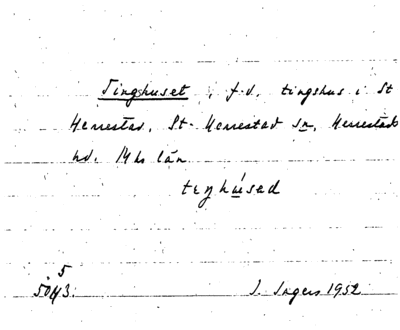 Tinghuset, f.d. tingshus i St
Herrestad, St. Herrestad sn, Herrestads
hd. Mh län
tıŋhúsəd
5
5043. I. Ingers 1952